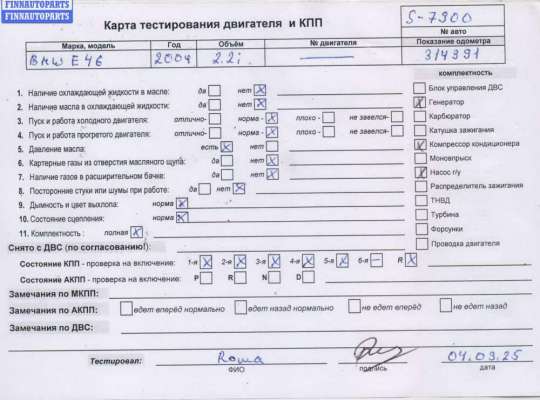 FINNAUTOPARTS
FINNAUTOPARTS
Карта тестирования двигателя и КПП
S-7300
№ авто
Марка, модель Год Объём № двигателя Показание одометра
BMW E46 2004 2.2i 314391
комплектность
1. Наличие охлаждающей жидкости в масле: да нет X
Блок управления ДВС
2. Наличие масла в охлаждающей жидкости: да нет X
X Генератор
3. Пуск и работа холодного двигателя: отлично- норма - X плохо - не завелся-
Карбюратор
4. Пуск и работа прогретого двигателя: отлично- норма - X плохо - не завелся-
Катушка зажигания
5. Давление масла: есть X нет
X Компрессор кондиционера
6. Картерные газы из отверстия масляного щупа: да нет X
Моновпрыск
7. Наличие газов в расширительном бачке: да нет X
X Насос г/у
8. Посторонние стуки или шумы при работе: да нет X
Распределитель зажигания
9. Дымность и цвет выхлопа: норма X
ТНВД
10. Состояние сцепления: норма X
Турбина
11. Комплектность : полная X
Форсунки
Снято с ДВС (по согласованию!):
Проводка двигателя
Состояние КПП - проверка на включение: 1-я X 2-я X 3-я X 4-я X 5-я X 6-я — R X
Состояние АКПП - проверка на включение: P R N D
Замечания по МКПП:
Замечания по АКПП: едет вперёд нормально едет назад нормально не едет вперёд не едет назад
Замечания по ДВС:
Тестировал: Roma 04.03.25
ФИО подпись дата